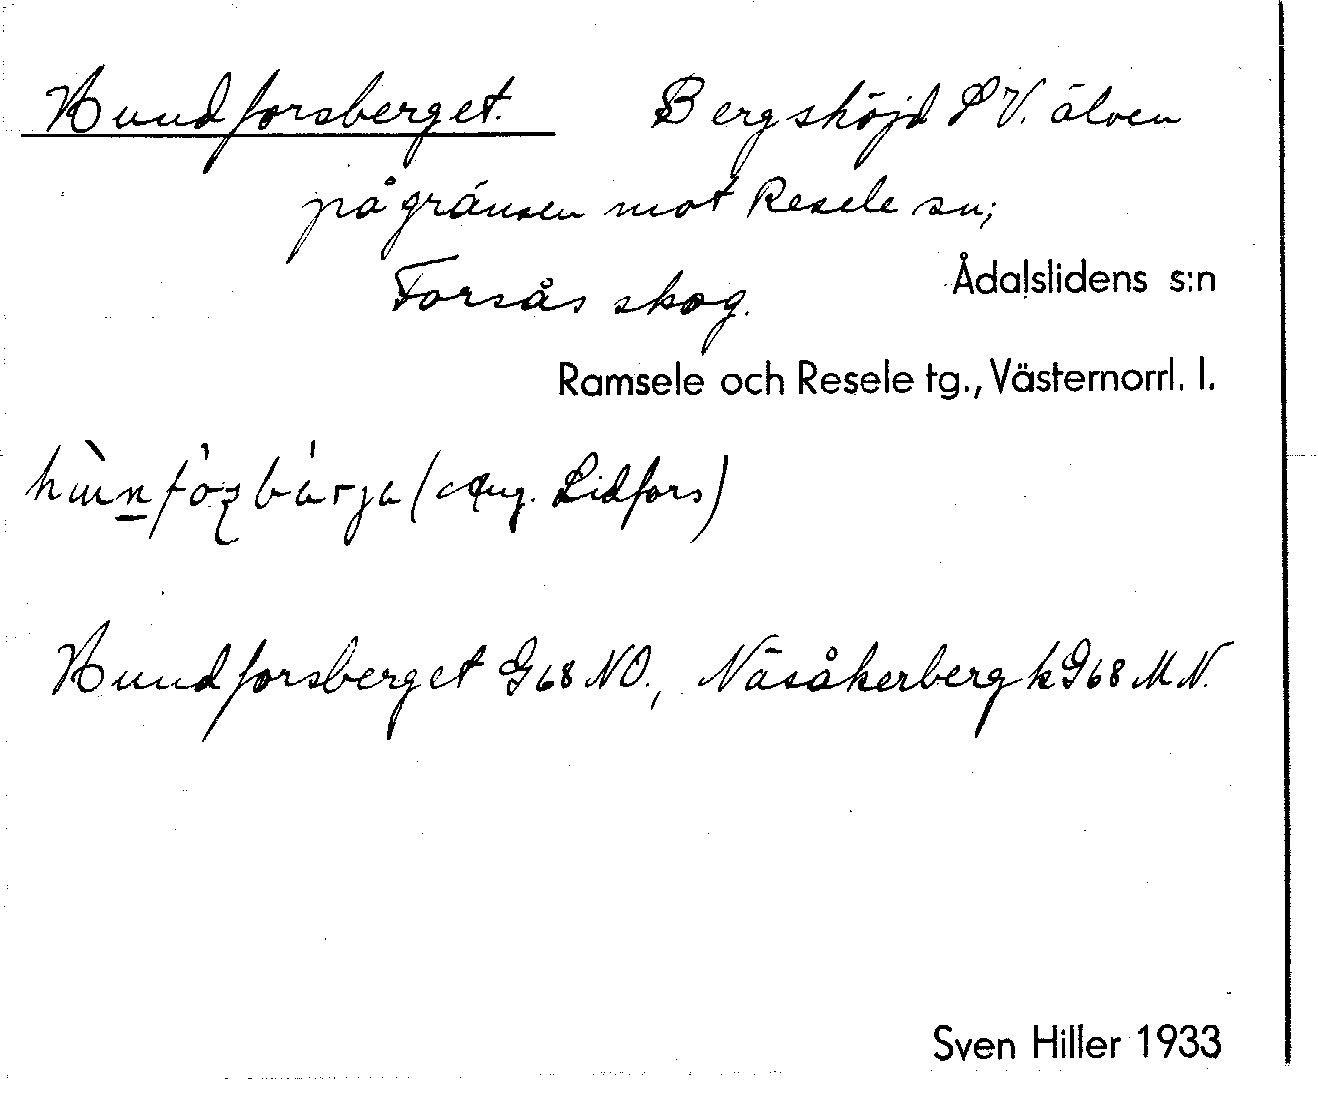 Hundforsberget. Bergshöjd S V. älven
på gränsen mot Resele sn;
Forsås skog. Ådalslidens s:n
Ramsele och Resele tg., Västernorrl. l.
(Aug. Lidfors)
Hundforsberget G68 NO., Näsåkerberg k G68 M N.
Sven Hiller 1933